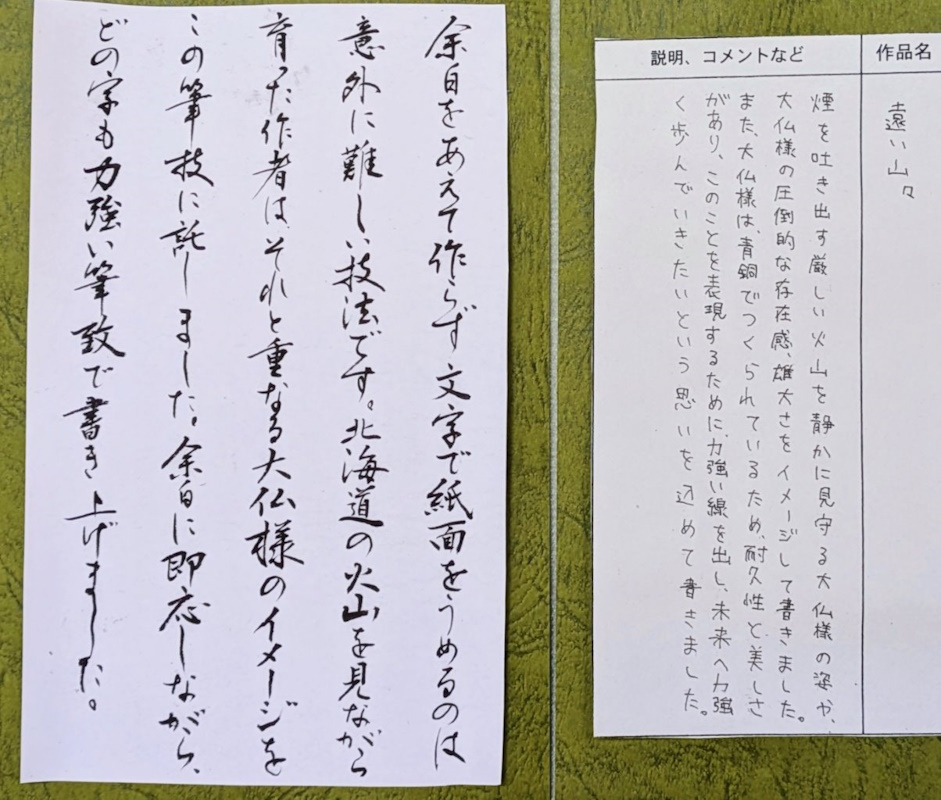 余白をあえて作らず文字で紙面をうめるのは
意外に難しい技法です。北海道の火山を見ながら
育った作者は、それと重なる大仏様のイメージを
この筆技に託しました。余白に即応しながら、
どの字も力強い筆致で書き上げました。
作品名
遠い山々
説明、コメントなど
煙を吐き出す厳しい火山を静かに見守る大仏様の姿や、
大仏様の圧倒的な存在感、雄大さをイメージして書きました。
また、大仏様は、青銅でつくられているため、耐久性と美しさ
があり、このことを表現するために、力強い線を出し、未来へ力強
く歩んでいきたいという思いを込めて書きました。